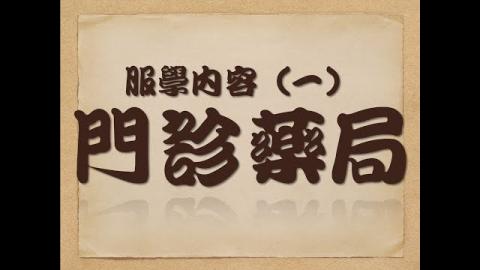 服學內容（一）
門診藥局